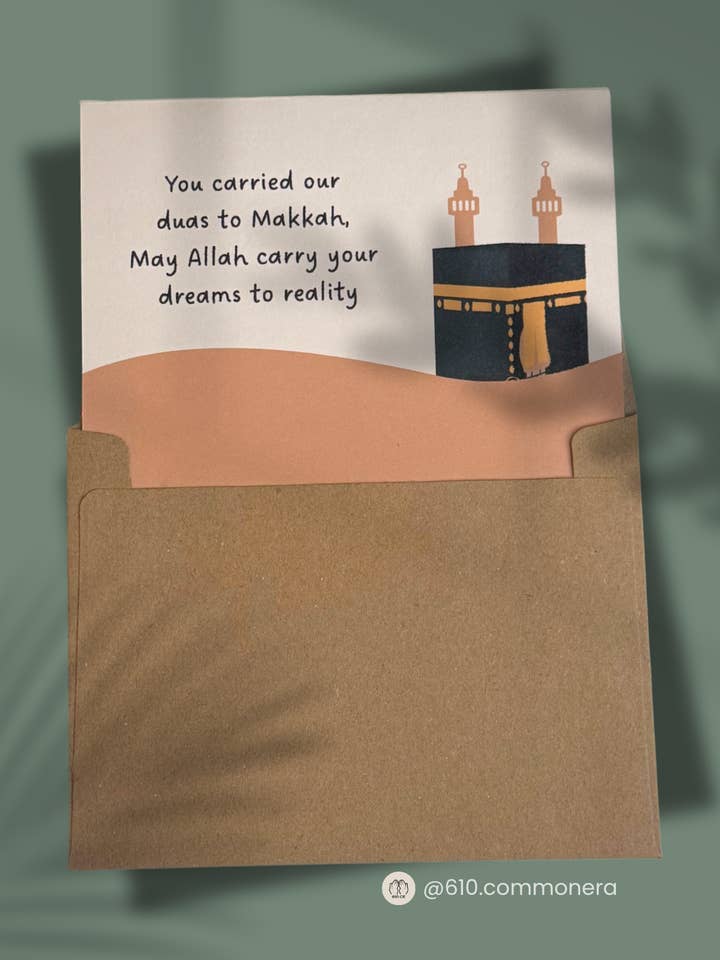 You carried our
duas to Makkah,
May Allah carry your
dreams to reality
@610.commonera